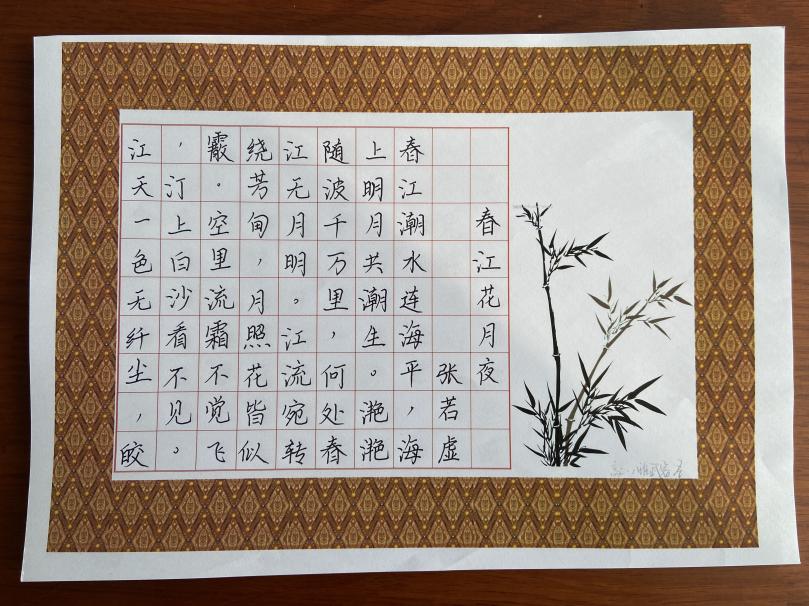 春江花月夜
张若虚
春江潮水连海平，海
上明月共潮生。滟滟
随波千万里，何处春
江无月明。江流宛转
绕芳甸，月照花皆似
霰。空里流霜不觉飞
，汀上白沙看不见。
江天一色无纤尘，皎